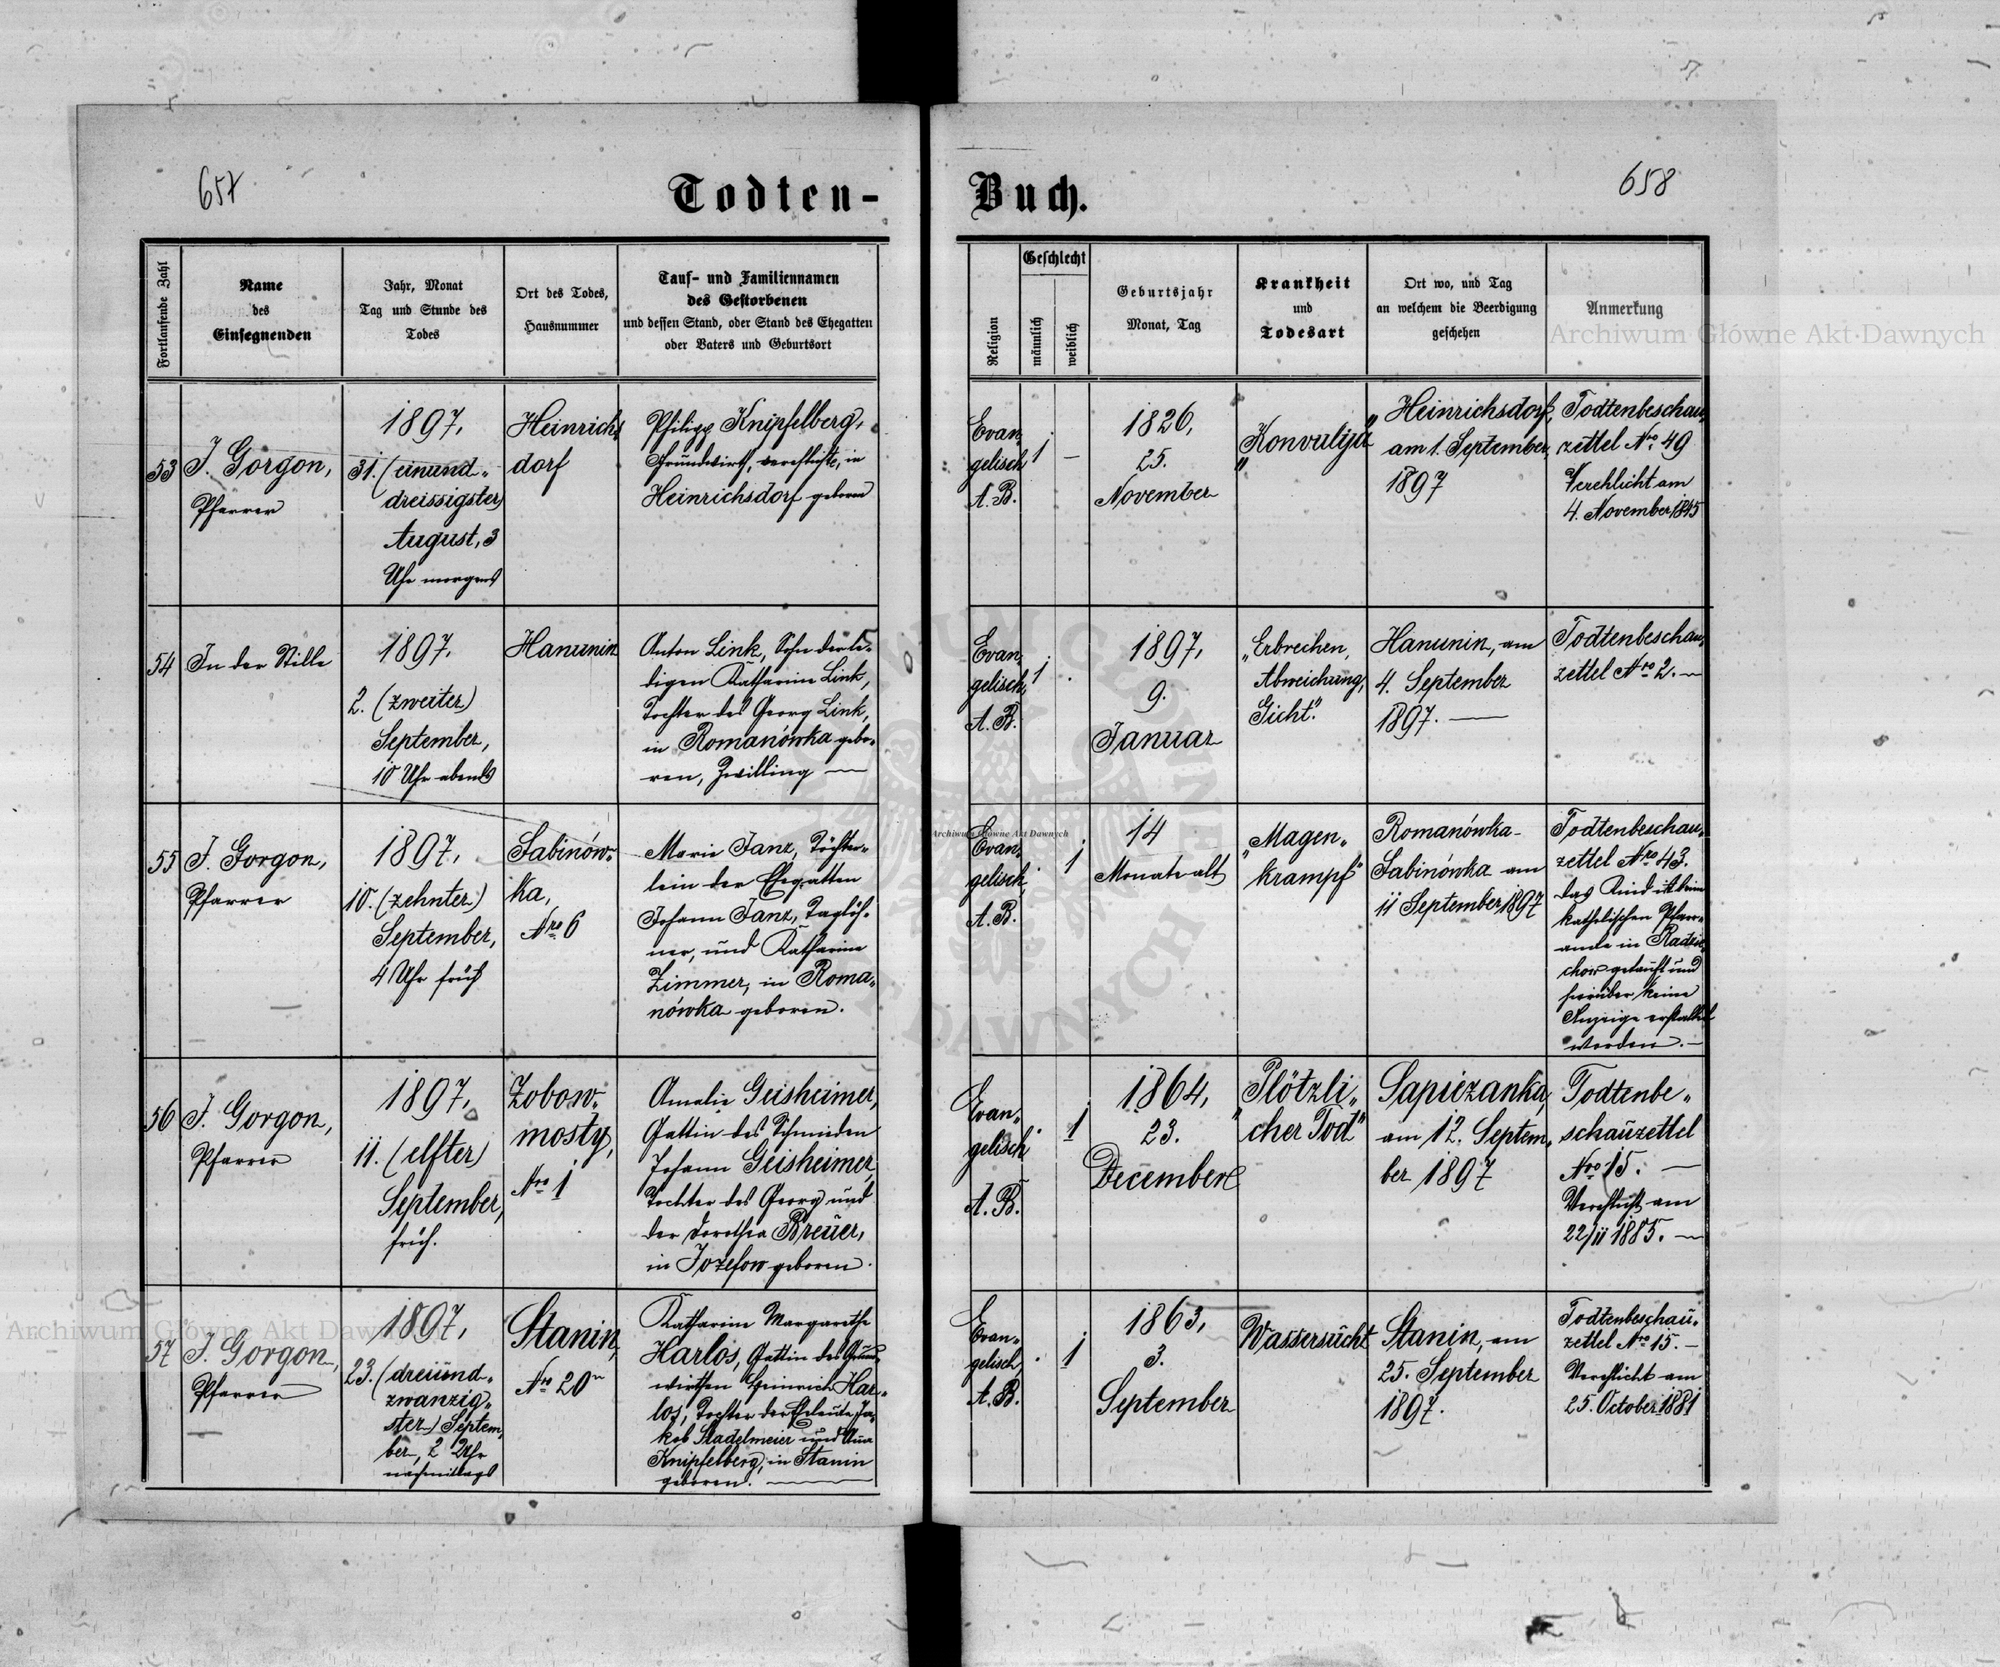 657
Todten-
Buch.
658
Fortlaufende Zahl
Name
des
Einsegnenden
Jahr, Monat
Tag und Stunde des
Todes
Ort des Todes,
Hausnummer
Tauf- und Familiennamen
des Gestorbenen
und dessen Stand, oder Stand des Ehegatten
oder Vaters und Geburtsort
Religion
Geschlecht
männlich
weiblich
Geburtsjahr
Monat, Tag
Krankheit
und
Todesart
Ort wo, und Tag
an welchem die Beerdigung
geschehen
Anmerkung
53
J. Gorgon,
Pfarrer
1897,
31. (einund-
dreissigster)
August, 3
Uhr morgens
Heinrichs
dorf
Philipp Knipfelberg,
Grundwirth, verehlicht, in
Heinrichsdorf geboren
Evan-
gelisch
A. B.
1
—
1826,
25.
November
"Konvulija"
Heinrichsdorf,
am 1. September
1897
Todtenbeschau-
zettel Nro 49
Verehlicht am
4. November 1845
54
In der Stille
1897,
2. (zweiter)
September,
10 Uhr abends
Hanunin
Anton Link, Sohn der le-
digen Katharina Link,
Tochter des Georg Link,
in Romanówka gebo-
ren, Zwilling —
Evan-
gelisch
A. B.
1
1897,
9.
Januar
"Erbrechen,
Abweichung,
Gicht."
Hanunin, am
4. September
1897. —
Todtenbeschau-
zettel Nro 2. —
55
J. Gorgon,
Pfarrer
1897,
10. (zehnter)
September,
4 Uhr früh
Sabinów-
ka,
Nro 6
Marie Janz, Töchter-
lein der Ehegatten
Johann Janz, Taglöh-
ner, und Katharina
Zimmer, in Roma-
nówka geboren.
Evan-
gelisch
A. B.
1
14
Monate alt
"Magen-
krampf"
Romanówka-
Sabinówka am
11 September 1897
Todtenbeschau-
zettel Nro 43.
Das Kind ist beim
katholischen Pfarr-
amte in Radzie-
chow getauft und
hierüber keine
Anzeige erstattet
worden. —
56
J. Gorgon,
Pfarrer
1897,
11. (elfter)
September,
früh.
Zobow-
mosty,
Nro 1
Amalie Geisheimer,
Gattin des Schmieden
Johann Geisheimer,
Tochter des Georg und
der Dorothea Breuer,
in Jozefow geboren.
Evan-
gelisch
A. B.
1
1864,
23.
December
"Plötzli-
cher Tod"
Sapiezanka,
am 12. Septem-
ber 1897
Todtenbe-
schauzettel
Nro 15. —
Verehlicht am
22/11 1885. —
57
J. Gorgon,
Pfarrer
1897,
23. (dreiund-
zwanzig-
ster) Septem-
ber, 2 Uhr
nachmittags
Stanin,
Nro 20
Katharina Margaretha
Harlos, Gattin des Grund-
wirthen Heinrich Har-
los, Tochter der Eheleute Ja-
kob Stadelmeier und Anna
Knipfelberg, in Stanin
geboren. —
Evan-
gelisch
A. B.
1
1863,
3.
September
Wassersucht
Stanin, am
25. September
1897.
Todtenbeschau-
zettel Nro 15. —
Verehlicht am
25. October 1881
Archiwum Główne Akt Dawnych
Archiwum Główne Akt Dawnych
Archiwum Główne Akt Dawnych